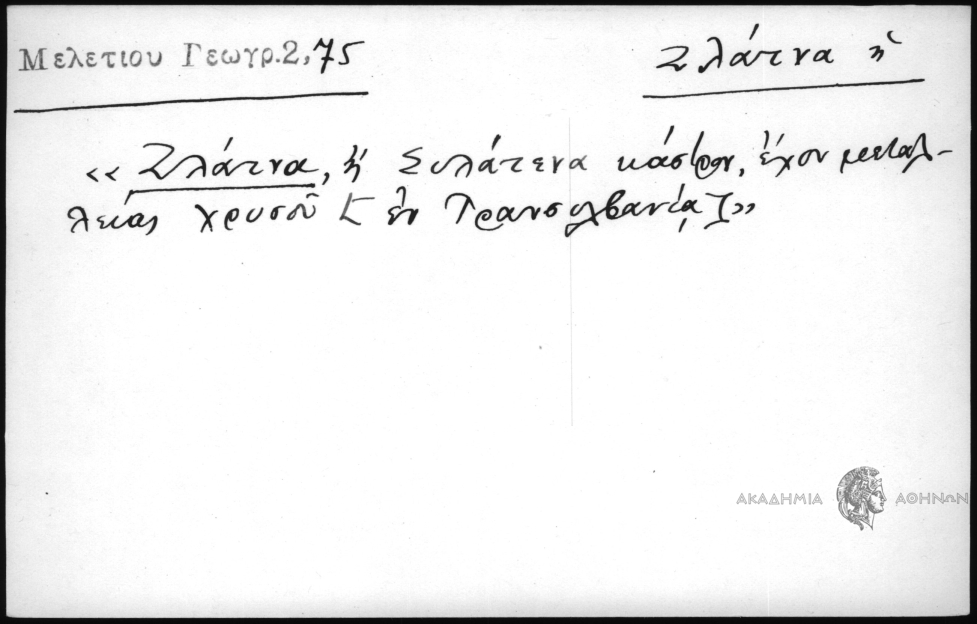 Μελετιου Γεωγρ.2,75
Ζλάτνα ἡ
«Ζλάτνα, ἤ Συλάτενα κάστρον, ἔχον μεταλ-
λείας χρυσοῦ [ἐν Τρανσυλβανίᾳ]»
ΑΚΑΔΗΜΙΑ ΑΘΗΝΩΝ